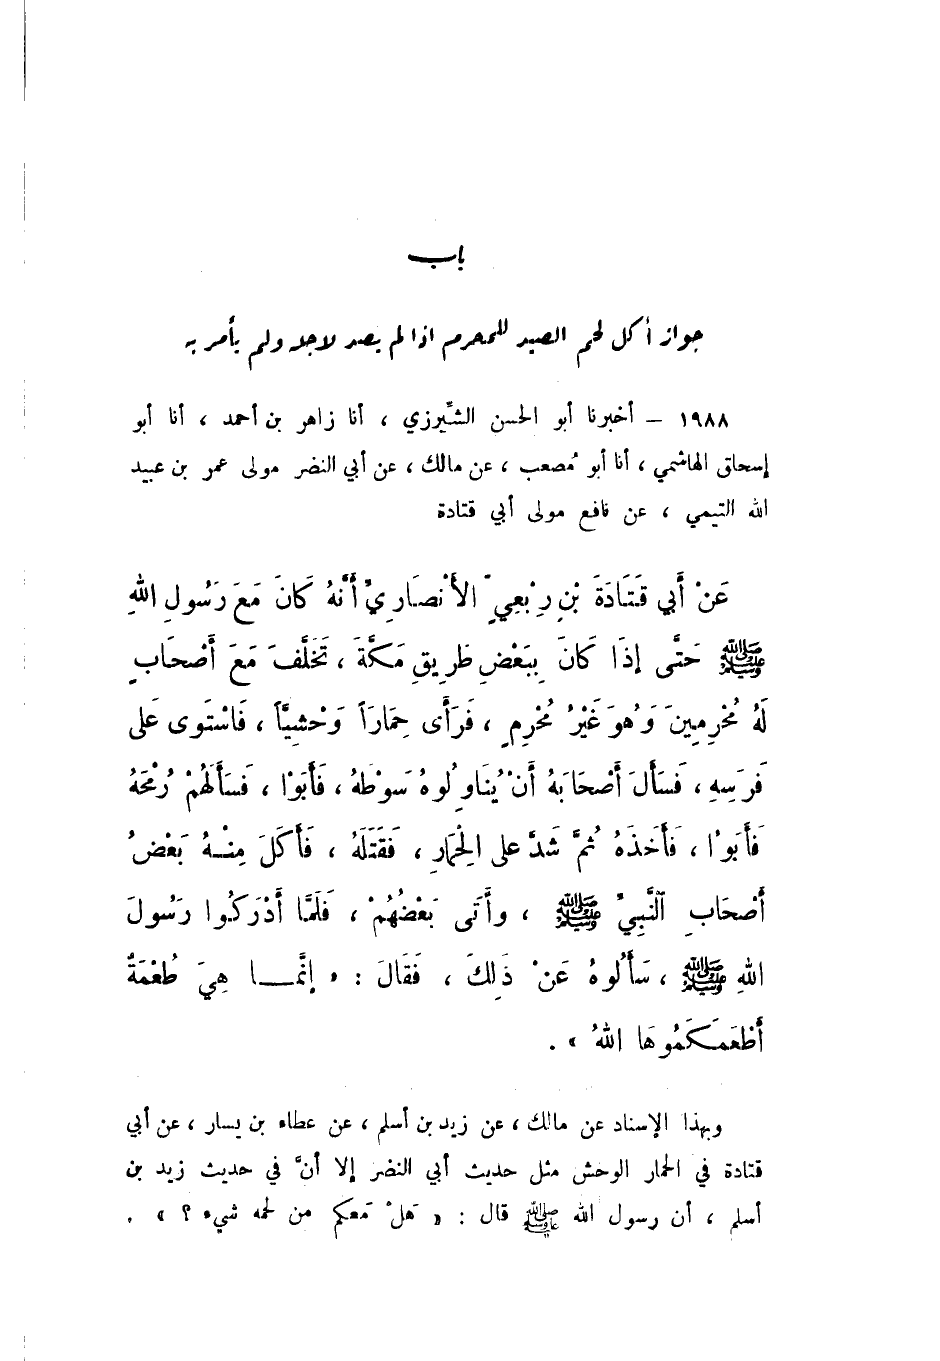 باب
جواز أكل لحم الصيد للمحرم اذا لم يصد لاجله ولم يأمر به
١٩٨٨ – أخبرنا أبو الحسن الشِّيرزي ، أنا زاهر بن أحمد ، أنا أبو
إسحاق الهاشمي ، أنا أبو مُصعب ، عن مالك ، عن أبي النضر مولى عمر بن عبيد
الله التيمي ، عن نافع مولى أبي قتادة
عَنْ أَبي قَتَادَةَ بْنِ رِبْعِيٍّ الأَنْصَارِيِّ أَنَّهُ كَانَ مَعَ رَسُولِ اللهِ
ﷺ حَتَّى إِذَا كَانَ بِبَعْضِ طَرِيقِ مَكَّةَ ، تَخَلَّفَ مَعَ أَصْحَابٍ
لَهُ مُحْرِمِينَ وَهُوَ غَيْرُ مُحْرِمٍ ، فَرَأَى حِمَارَاً وَحْشِيَّاً ، فَاسْتَوى عَلى
فَرَسِهِ ، فَسَأَلَ أَصْحَابَهُ أَنْ يُنَاوِلُوهُ سَوْطَهُ ، فَأَبَوْا ، فَسَأَلَهُمْ رُمْحَهُ
فَأَبَوْا ، فَأَخَذَهُ ثُمَّ شَدَّ عَلى الْحِمَارِ ، فَقَتَلَهُ ، فَأَكَلَ مِنْهُ بَعْضُ
أَصْحَابِ النَّبِيِّ ﷺ ، وأَتَى بَعْضُهُمْ ، فَلَمَّا أَدْرَكُوا رَسُولَ
اللهِ ﷺ ، سَأَلُوهُ عَنْ ذَلِكَ ، فَقَالَ : « إِنَّمَا هِيَ طُعْمَةٌ
أَطْعَمَكَمُوهَا اللهُ » .
وبهذا الإسناد عن مالك ، عن زيد بن أسلم ، عن عطاء بن يسار ، عن أبي
قتادة في الحمار الوحش مثل حديث أبي النضر إلا أنَّ في حديث زيد بن
أسلم ، أن رسول الله ﷺ قال : « هَلْ مَعكم من لحمه شيء ؟ » .